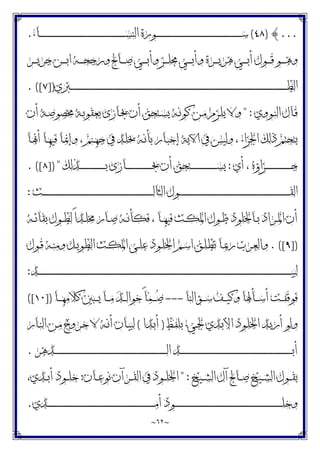 ... ﴾ (٤٨) ســورة النســاء.
وهــو قــول أبــي هريــرة وأبــي مجلــز وأبــي صــالح ورجحــه ابــن جريــر
الطبــري([٧]) .
قال النووي : " ولا يلزم من كونه يستحق أن يجازى بعقوبة مخصوصة أن
يتحتم ذلك الجزاء ، وليس في الآية إخبار بأنه يخلد في جهنم، وإنما فيها أنها
جــزاؤه ، أي : يســتحق أن يجــازى بــذلك " ([٨]) .
القــول الثالــث :
أن المراد بالخلود طول المكث فيها ، فكأنه صار مخلداً لطول بقائه
([٩]) . والعرب ربما تطلق اسم الخلود على المكث الطويل ومنه قول
لبيــد:
فوقفت أسألها وكيف سؤالنا --- صُمّاً خوالد ما يبين كلامها ([١٠])
ولو أريد الخلود الأبدي لجيء بلفظ ( أبدا ) لبيان أنه لا خروج من النار
أبــد الــدهر .
يقول الشيخ صالح آل الشيخ : " الخلود في القرآن نوعان: خلود أبدي،
وخلــود أمــدي.
~٦٢~